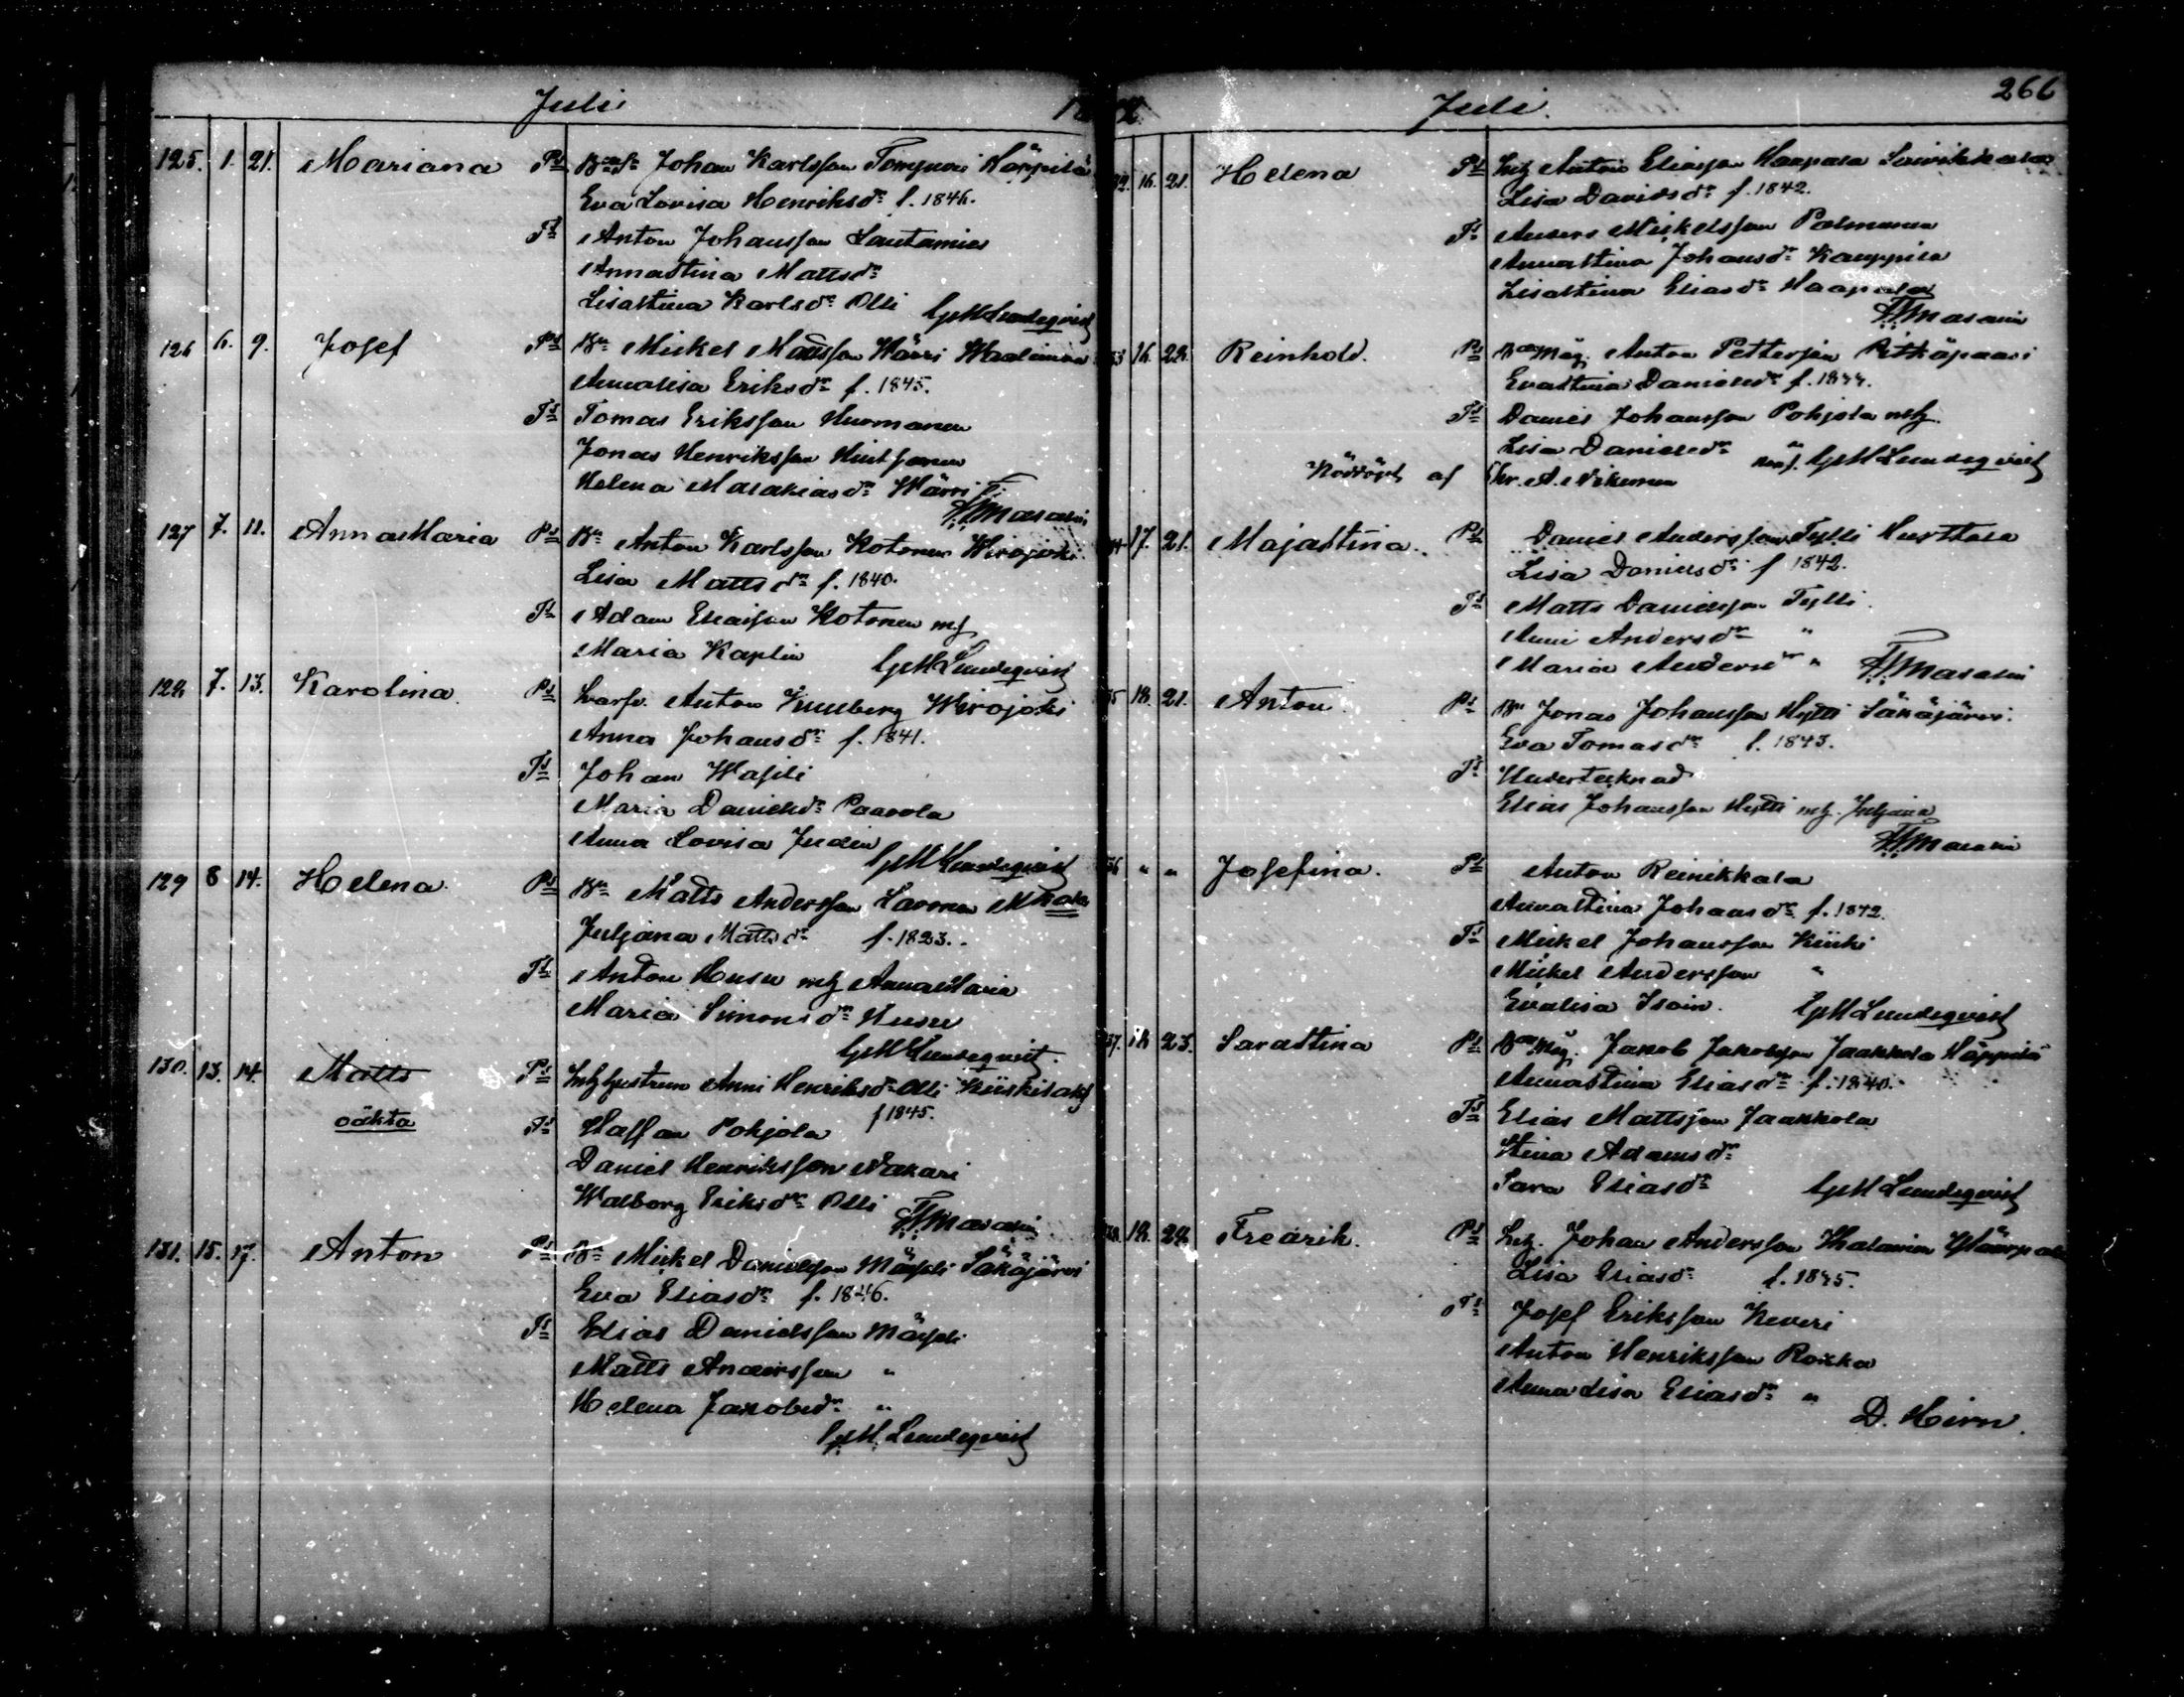 Juli
125. 1. 21. Mariana Ps Johan Karlsson Tompuri Häppilä
Eva Lovisa Henriksdr f. 1846.
Ts Anton Johansson Lautamies
Annastina Mattsdr
Lisastina Karlsdr Olli GM Lundeqvist
126 6. 9. Josef Ps Bn Mickel Mattsson Wärri
Annalisa Eriksdr f. 1845.
Ts Tomas Eriksson Hurmanen
Jonas Henriksson
Helena Malakiasdr Wärri
Masalin
127 7. 11. Anna Maria Ps Bn Anton Karlsson Kotonen Wirojoki
Lisa Mattsdr f. 1840.
Ts Adam Eliasson Kotonen mh
Maria Kaplin GM Lundeqvist
128 7. 13. Karolina. Ps Anton Wirojoki
Anna Johansdr f. 1841.
Ts Johan Wasili
Maria Danielsdr Paavola
Anna Lovisa Judin
GM Lundeqvist
129 8 14. Helena. Ps Bn Matts Andersson Lavonen
Juljana Mattsdr f. 1823.
Ts Anton Husu mh Anna Maria
Maria Simonsdr Husu
GM Lundeqvist.
130. 13. 14. Matts Ps Anni Henriksdr Olli
f 1845.
oäkta Ts Staffan Pohjola
Daniel Henriksson Wakari
Walborg Eriksdr Olli
Masalin
131. 15. 17. Anton Ps Bn Mickel Danielsson Mäyli Säkäjärvi
Eva Eliasdr f. 1846.
Ts Elias Danielsson Mäyli
Matts Andersson "
Helena Jakobsdr "
GM Lundeqvist
266
Juli.
16. 21. Helena Ps Anton Eliasson Haapala
Lisa Davidsdr f. 1842.
Ts Anders Mickelsson
Annastina Johansdr Kauppila
Lisastina Eliasdr Haapala
Masalin
16. 22. Reinhold. Ps Anton Pettersson Pitkäpaasi
Evastina Danielsdr f. 1844.
Ts Daniel Johansson Pohjola mh
Lisa Danielsdr GM Lundeqvist
Nöddöpt af A. Nikunen
17. 21. Majastina. Ps Daniel Andersson Tylli Hurttala
Lisa Danielsdr f 1842.
Ts Matts Danielsson Tylli.
Anni Andersdr "
Maria Andersdr " Masalin
18. 21. Anton. Ps Bn Jonas Johansson Hytti Säkäjärvi.
Eva Tomasdr f. 1843.
Ts Undertecknad
Elias Johansson Hytti mh. Juljana
Masalin
" " Josefina. Ps Anton Reinikkala
Annastina Johansdr f. 1842.
Ts Mickel Johansson Kiiki
Mickel Andersson "
Evalisa GM Lundeqvist
18 23. Sarastina Ps Jakob Jakobsson Jaakkola Häppilä
Annastina Eliasdr f. 1840.
Ts Elias Mattsson Jaakkola
Stina Adamsdr
Sara Eliasdr GM Lundeqvist
18. 22. Fredrik. Ps Johan Andersson
Lisa Eliasdr f. 1845.
Ts Josef Eriksson Keveri
Anton Henriksson Rokka
Anna Lisa Eliasdr "
D. Hirn.